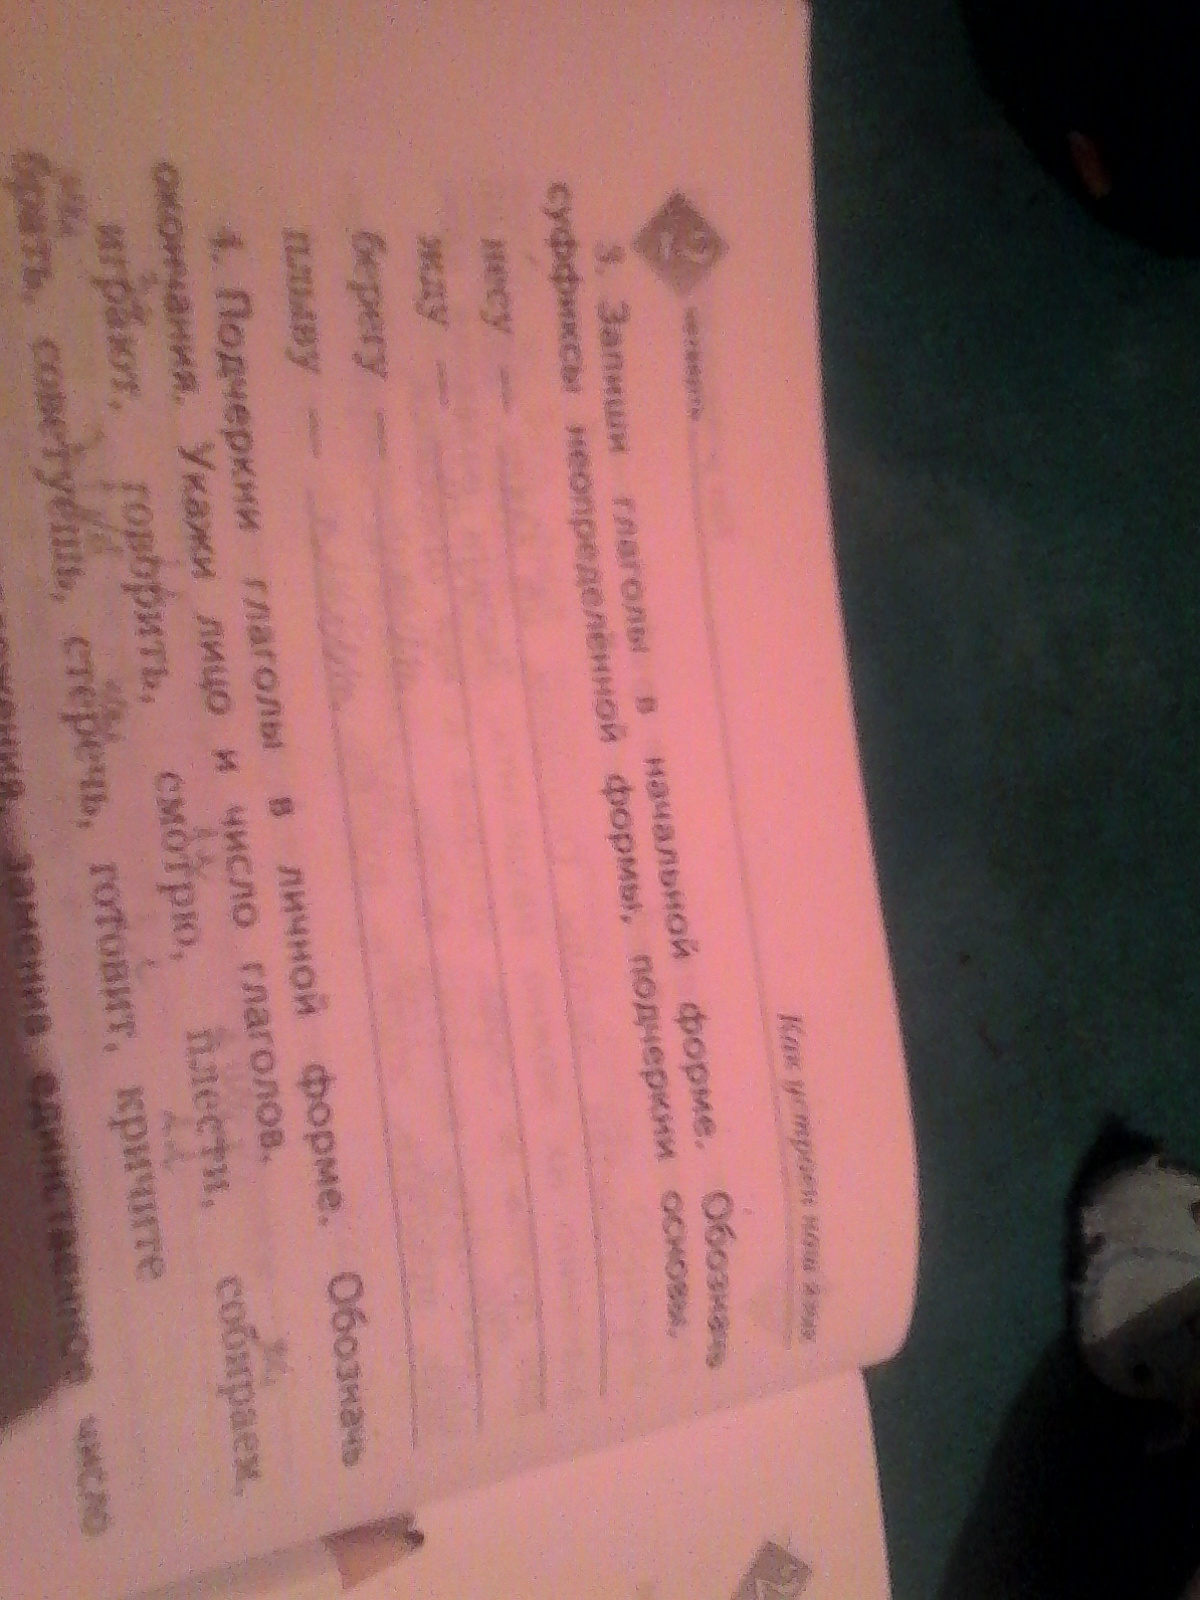 2
четверть
Как устроен наш язык
3. Запиши глаголы в начальной форме. Обозначь
суффиксы неопределённой формы, подчеркни основы.
несу —
жду —
берегу —
плыву —
4. Подчеркни глаголы в личной форме. Обозначь
окончания. Укажи лицо и число глаголов.
играют, говорить, смотрю, плести, собираем,
брать, советуешь, стеречь, готовит, кричите
заменив единственное число
2